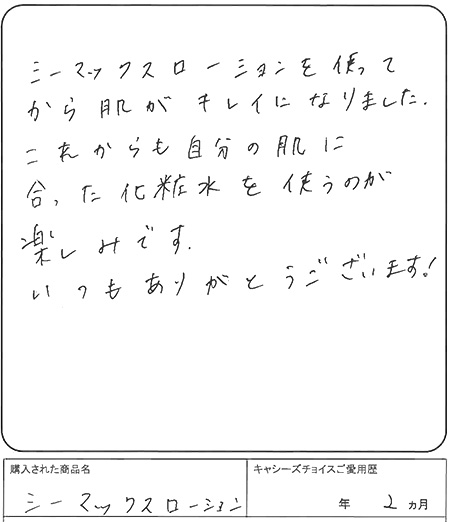 シーマックスローションを使って
から肌がキレイになりました.
これからも自分の肌に
合った化粧水を使うのが
楽しみです.
いつもありがとうございます!
購入された商品名
キャシーズチョイスご愛用歴
シーマックスローション
年 2 ヵ月